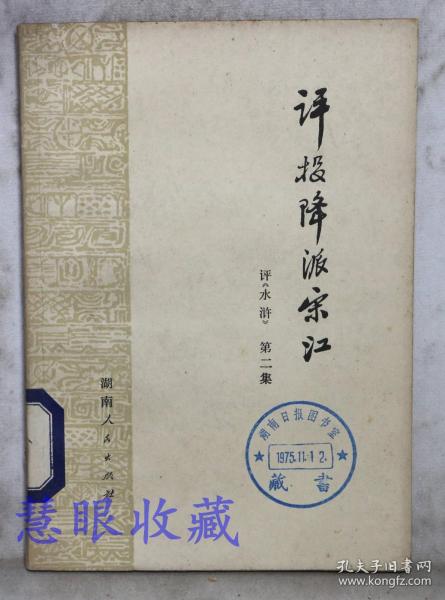 评投降派宋江
评《水浒》 第二集
湖南人民出版社
湖南日报图书室
1975.11.12.
藏 书
慧眼收藏
孔夫子旧书网
www.kongfz.com